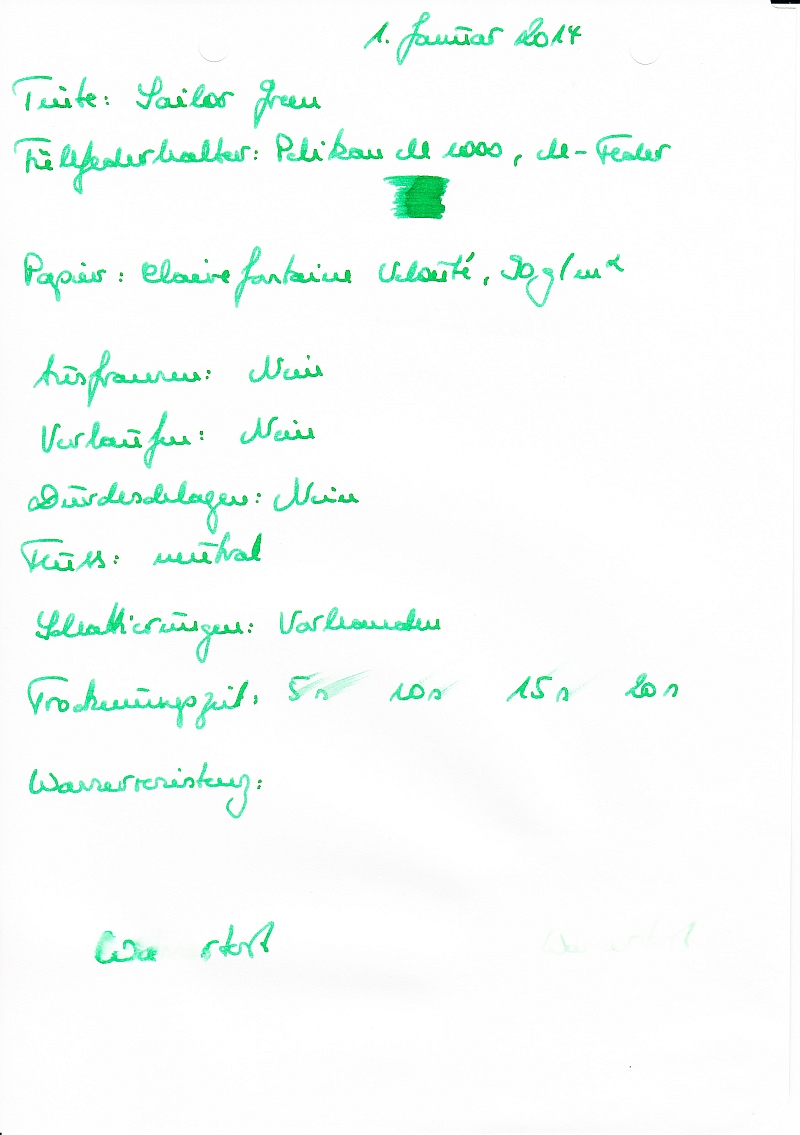 1. Januar 2014
Tinte: Sailor green
Füllfederhalter: Pelikan M 1000, M-Feder
Papier: Clairefontaine Velouté, 90 g/m²
Ausfransen: Nein
Verlaufen: Nein
Durchschlagen: Nein
Fluss: neutral
Schattierungen: Vorhanden
Trocknungszeit: 5s 10s 15s 20s
Wasserresistenz: